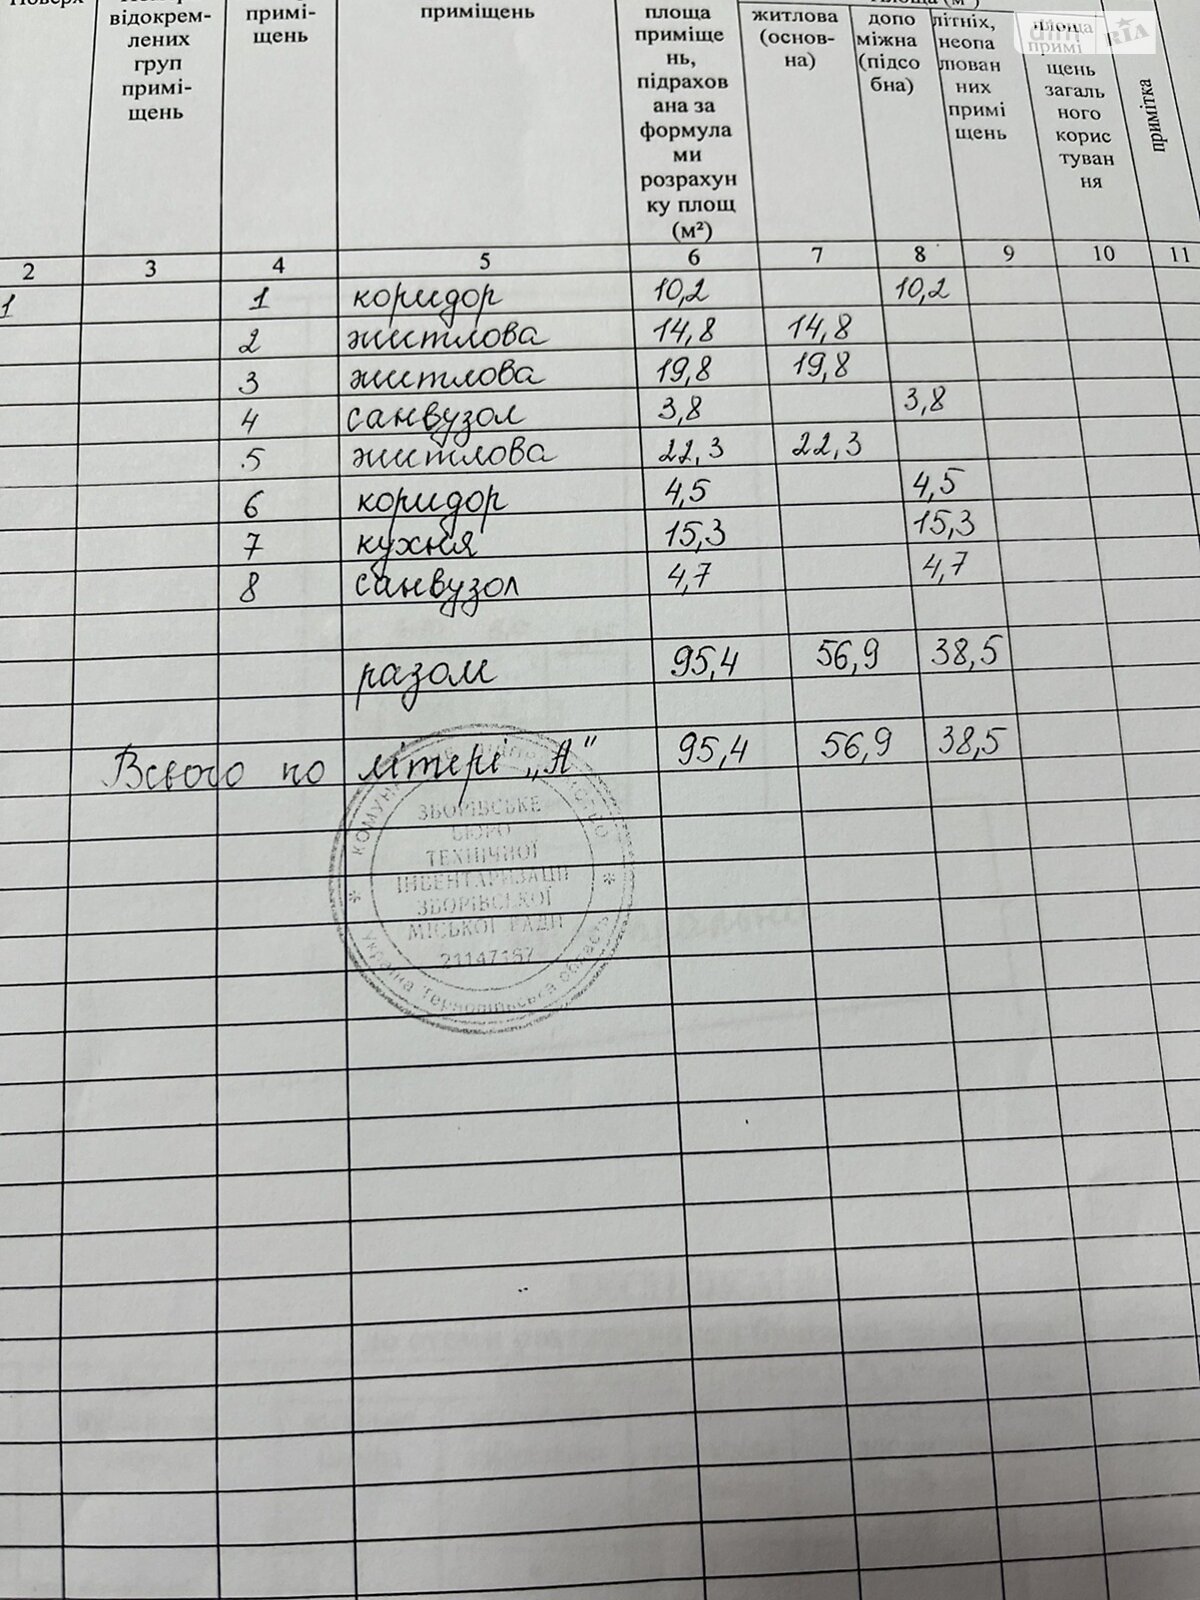 Поверх відокрем-лених груп примі-щень примі-щень приміщень площа приміще нь, підрахов ана за формула ми розрахун ку площ (м²) житлова (основ-на) допо міжна (підсо бна) літніх, неопа люван них примі щень площа примі щень загаль ного корис туван ня примітка
dim RIA
2 3 4 5 6 7 8 9 10 11
1 1 коридор 10,2 10,2
2 житлова 14,8 14,8
3 житлова 19,8 19,8
4 санвузол 3,8 3,8
5 житлова 22,3 22,3
6 коридор 4,5 4,5
7 кухня 15,3 15,3
8 санвузол 4,7 4,7
разом 95,4 56,9 38,5
Всього по літері „А" 95,4 56,9 38,5
ЗБОРІВСЬКЕ
БЮРО
ТЕХНІЧНОЇ
ІНВЕНТАРИЗАЦІЇ
ЗБОРІВСЬКОЇ
МІСЬКОЇ РАДИ
21147167
Україна Тернопільська область